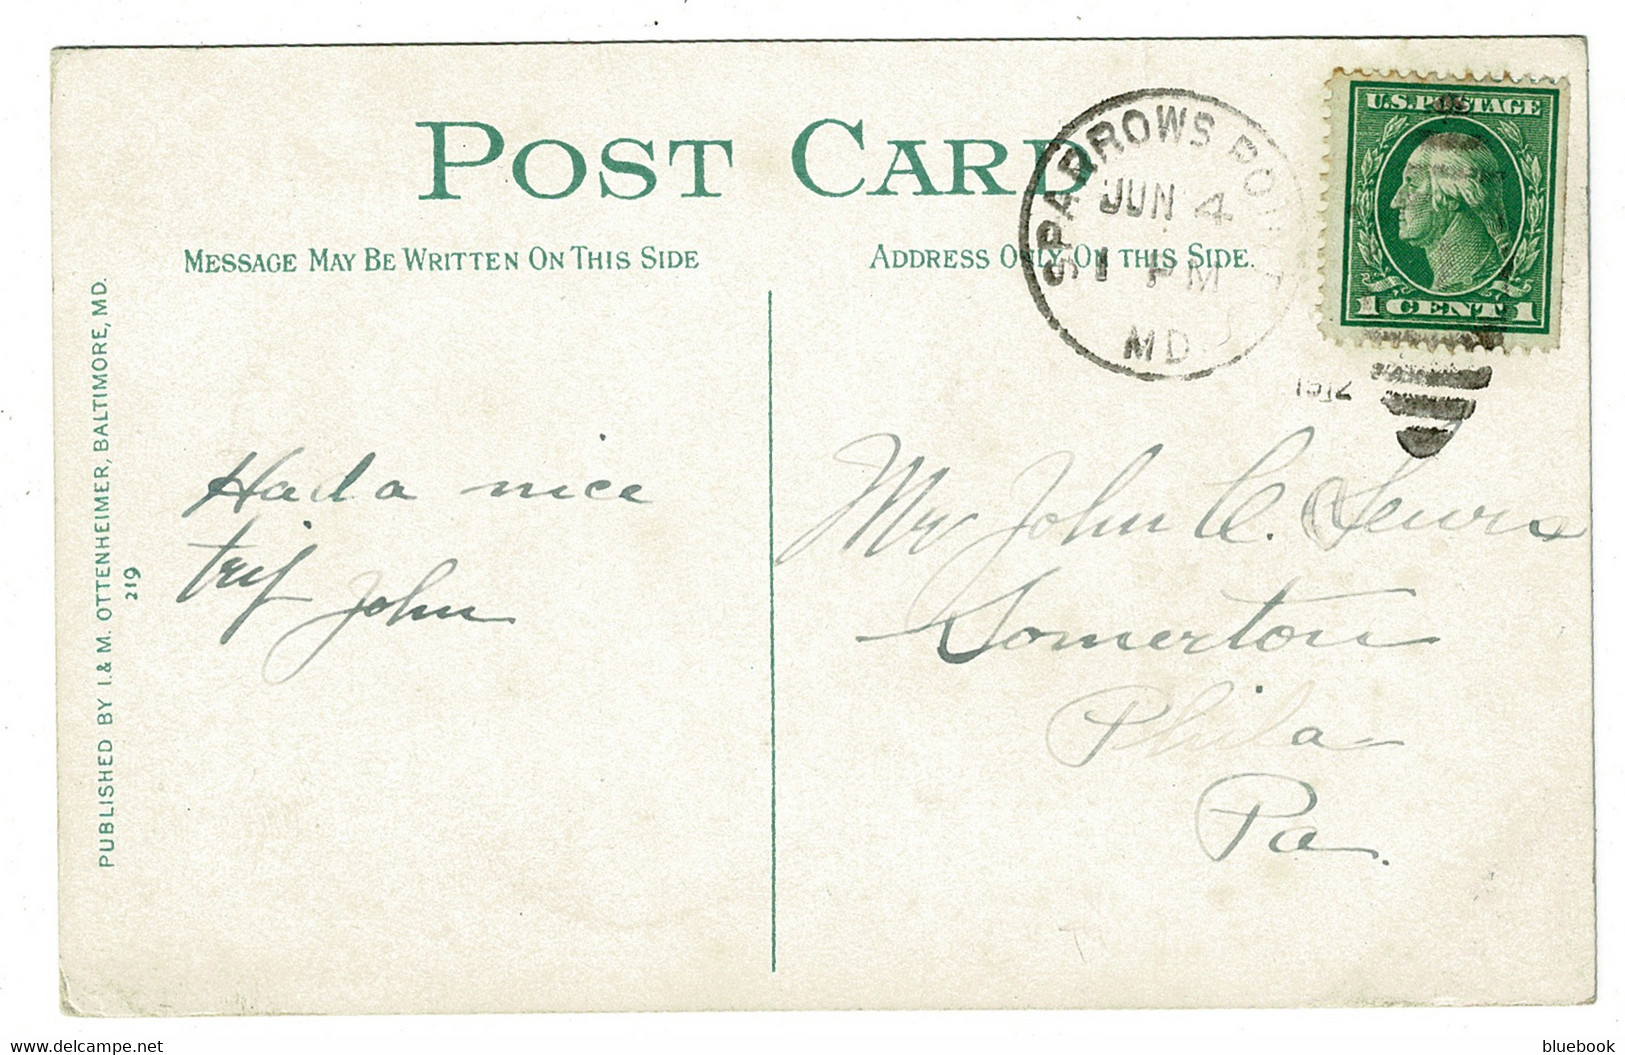 POST CARD
MESSAGE MAY BE WRITTEN ON THIS SIDE
ADDRESS ONLY ON THIS SIDE.
SPARROWS POINT
JUN 4
1 PM
MD.
1912
U.S. POSTAGE
1 CENT 1
PUBLISHED BY I. & M. OTTENHEIMER, BALTIMORE, MD.
219
Had a nice
trip
John
Mr John C. Lewis
Somerton
Phila
Pa.
bluebook